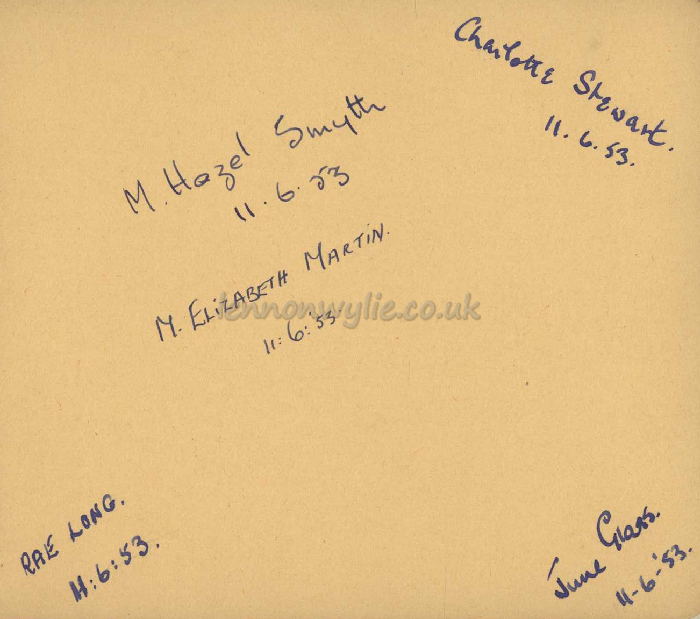 Charlotte Stewart.
11.6.53.
M. Hazel Smyth
11.6.53
M. ELIZABETH MARTIN.
11:6:'53
lennonwylie.co.uk
RAE LONG.
11:6:53.
June Glass.
11-6-'53.